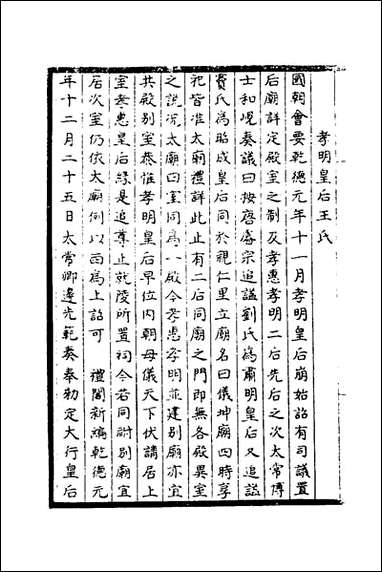 孝明皇后王氏
國朝會要乾德元年十一月孝明皇后崩始詔有司議置
后廟詳定殿室之制及孝惠孝明二后先后之次太常博
士和峴奏議曰按唐睿宗追諡劉氏為肅明皇后又追諡
竇氏為昭成皇后同於親仁里立廟名曰儀坤廟四時享
祀皆准太廟禮詳此止有二后同廟之門即無各殿異室
之說況太廟四室同為一殿今孝惠孝明並建別廟亦宜
共殿別室恭惟孝明皇后早位內朝母儀天下伏請居上
室孝惠皇后緣是追尊止就陵所置祠今若同祔別廟宜
居次室仍依太廟例以西為上詔可　禮閣新編乾德元
年十二月二十五日太常卿邊光範奏奉勑定大行皇后